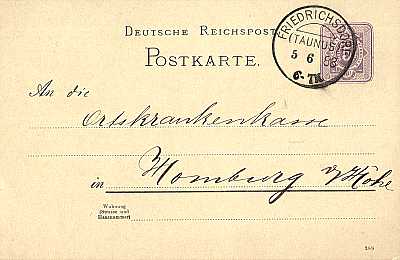 DEUTSCHE REICHSPOST
POSTKARTE.
FRIEDRICHSDORF
(TAUNUS)
5 6
6-7N
An die
Ortskrankenkasse
in Homburg v/Höhe
Wohnung
(Strasse und
Hausnummer)